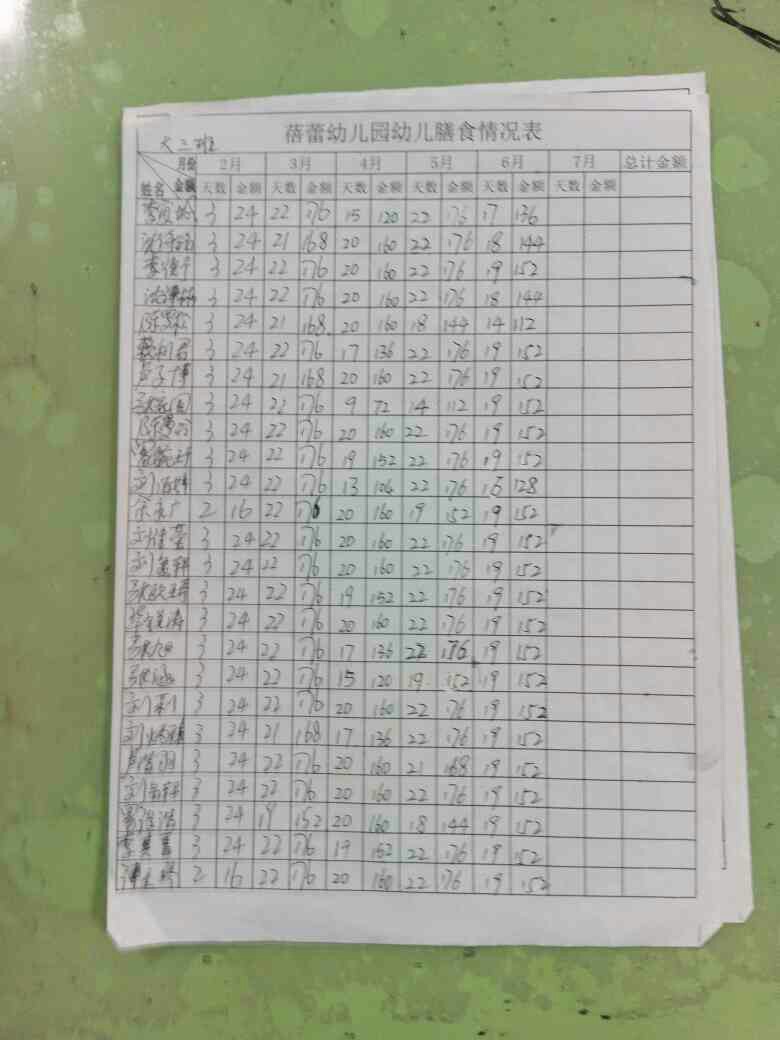 蓓蕾幼儿园幼儿膳食情况表
大三班
月份 2月 3月 4月 5月 6月 7月 总计金额
姓名 金额 天数 金额 天数 金额 天数 金额 天数 金额 天数 金额 天数 金额
3 24 22 176 15 120 22 176 17 136
3 24 21 168 20 160 22 176 18 144
3 24 22 176 20 160 22 176 19 152
3 24 22 176 20 160 22 176 18 144
3 24 21 168 20 160 18 144 14 112
3 24 22 176 17 136 22 176 19 152
3 24 21 168 20 160 22 176 19 152
3 24 22 176 9 72 14 112 19 152
3 24 22 176 20 160 22 176 19 152
3 24 22 176 19 152 22 176 19 152
3 24 22 176 13 104 22 176 16 128
2 16 22 176 20 160 19 152 19 152
3 24 22 176 20 160 22 176 19 152
3 24 22 176 20 160 22 176 19 152
3 24 22 176 19 152 22 176 19 152
3 24 22 176 20 160 22 176 19 152
张旭 3 24 22 176 17 136 22 176 19 152
张涵 3 24 22 176 15 120 19 152 19 152
刘利 3 24 22 176 20 160 22 176 19 152
3 24 21 168 17 136 22 176 19 152
3 24 22 176 20 160 21 168 19 152
3 24 22 176 20 160 22 176 19 152
3 24 19 152 20 160 18 144 19 152
3 24 22 176 19 152 22 176 19 152
2 16 22 176 20 160 22 176 19 152